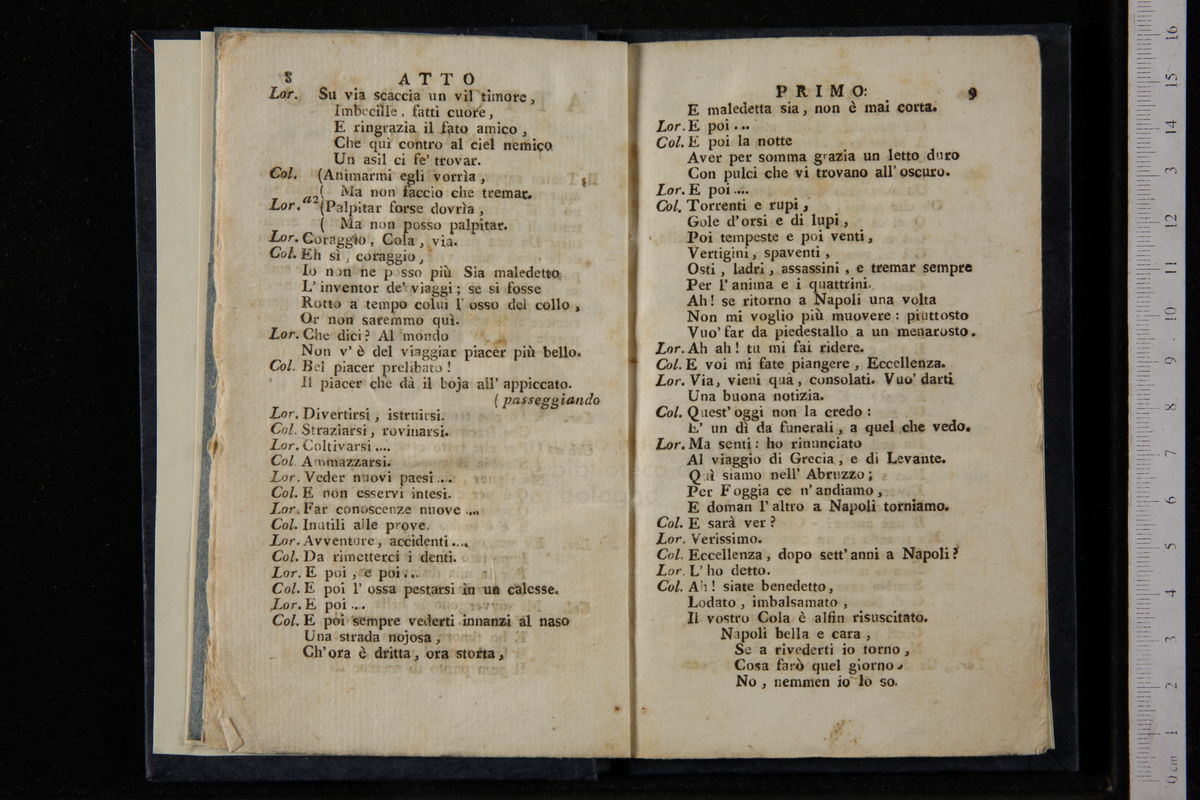 8 ATTO
Lor. Su via scaccia un vil timore,
Imbecille, fatti cuore,
E ringrazia il fato amico,
Che quì contro al ciel nemico
Un asil ci fe' trovar.
Col. (Animarmi egli vorrìa,
( Ma non faccio che tremar.
Lor. a2 (Palpitar forse dovrìa,
( Ma non posso palpitar.
Lor. Coraggio, Cola, via.
Col. Eh sì, coraggio,
Io non ne posso più Sia maledetto
L'inventor de' viaggi; se si fosse
Rotto a tempo colui l'osso del collo,
Or non saremmo quì.
Lor. Che dici? Al mondo
Non v'è del viaggiar piacer più bello.
Col. Bel piacer prelibato!
Il piacer che dà il boja all'appiccato.
(passeggiando
Lor. Divertirsi, istruirsi.
Col. Straziarsi, rovinarsi.
Lor. Coltivarsi....
Col. Ammazzarsi.
Lor. Veder nuovi paesi....
Col. E non esservi intesi.
Lor. Far conoscenze nuove....
Col. Inutili alle prove.
Lor. Avventure, accidenti....
Col. Da rimetterci i denti.
Lor. E poi, e poi...
Col. E poi l'ossa pestarsi in un calesse.
Lor. E poi....
Col. E poi sempre vederti innanzi al naso
Una strada nojosa,
Ch'ora è dritta, ora storta,
PRIMO. 9
E maledetta sia, non è mai corta.
Lor. E poi...
Col. E poi la notte
Aver per somma grazia un letto duro
Con pulci che vi trovano all'oscuro.
Lor. E poi....
Col. Torrenti e rupi,
Gole d'orsi e di lupi,
Poi tempeste e poi venti,
Vertigini, spaventi,
Osti, ladri, assassini, e tremar sempre
Per l'anima e i quattrini.
Ah! se ritorno a Napoli una volta
Non mi voglio più muovere: piuttosto
Vuo' far da piedestallo a un menarosto.
Lor. Ah ah! tu mi fai ridere.
Col. E voi mi fate piangere, Eccellenza.
Lor. Via, vieni quà, consolati. Vuo' darti
Una buona notizia.
Col. Quest'oggi non la credo:
E' un dì da funerali, a quel che vedo.
Lor. Ma senti: ho rinunciato
Al viaggio di Grecia, e di Levante.
Quì siamo nell'Abruzzo;
Per Foggia ce n'andiamo,
E doman l'altro a Napoli torniamo.
Col. E sarà ver?
Lor. Verissimo.
Col. Eccellenza, dopo sett'anni a Napoli?
Lor. L'ho detto.
Col. Ah! siate benedetto,
Lodato, imbalsamato,
Il vostro Cola è alfin risuscitato.
Napoli bella e cara,
Se a rivederti io torno,
Cosa farò quel giorno
No, nemmen io lo so.
0 cm 1 2 3 4 5 6 7 8 9 10 11 12 13 14 15 16